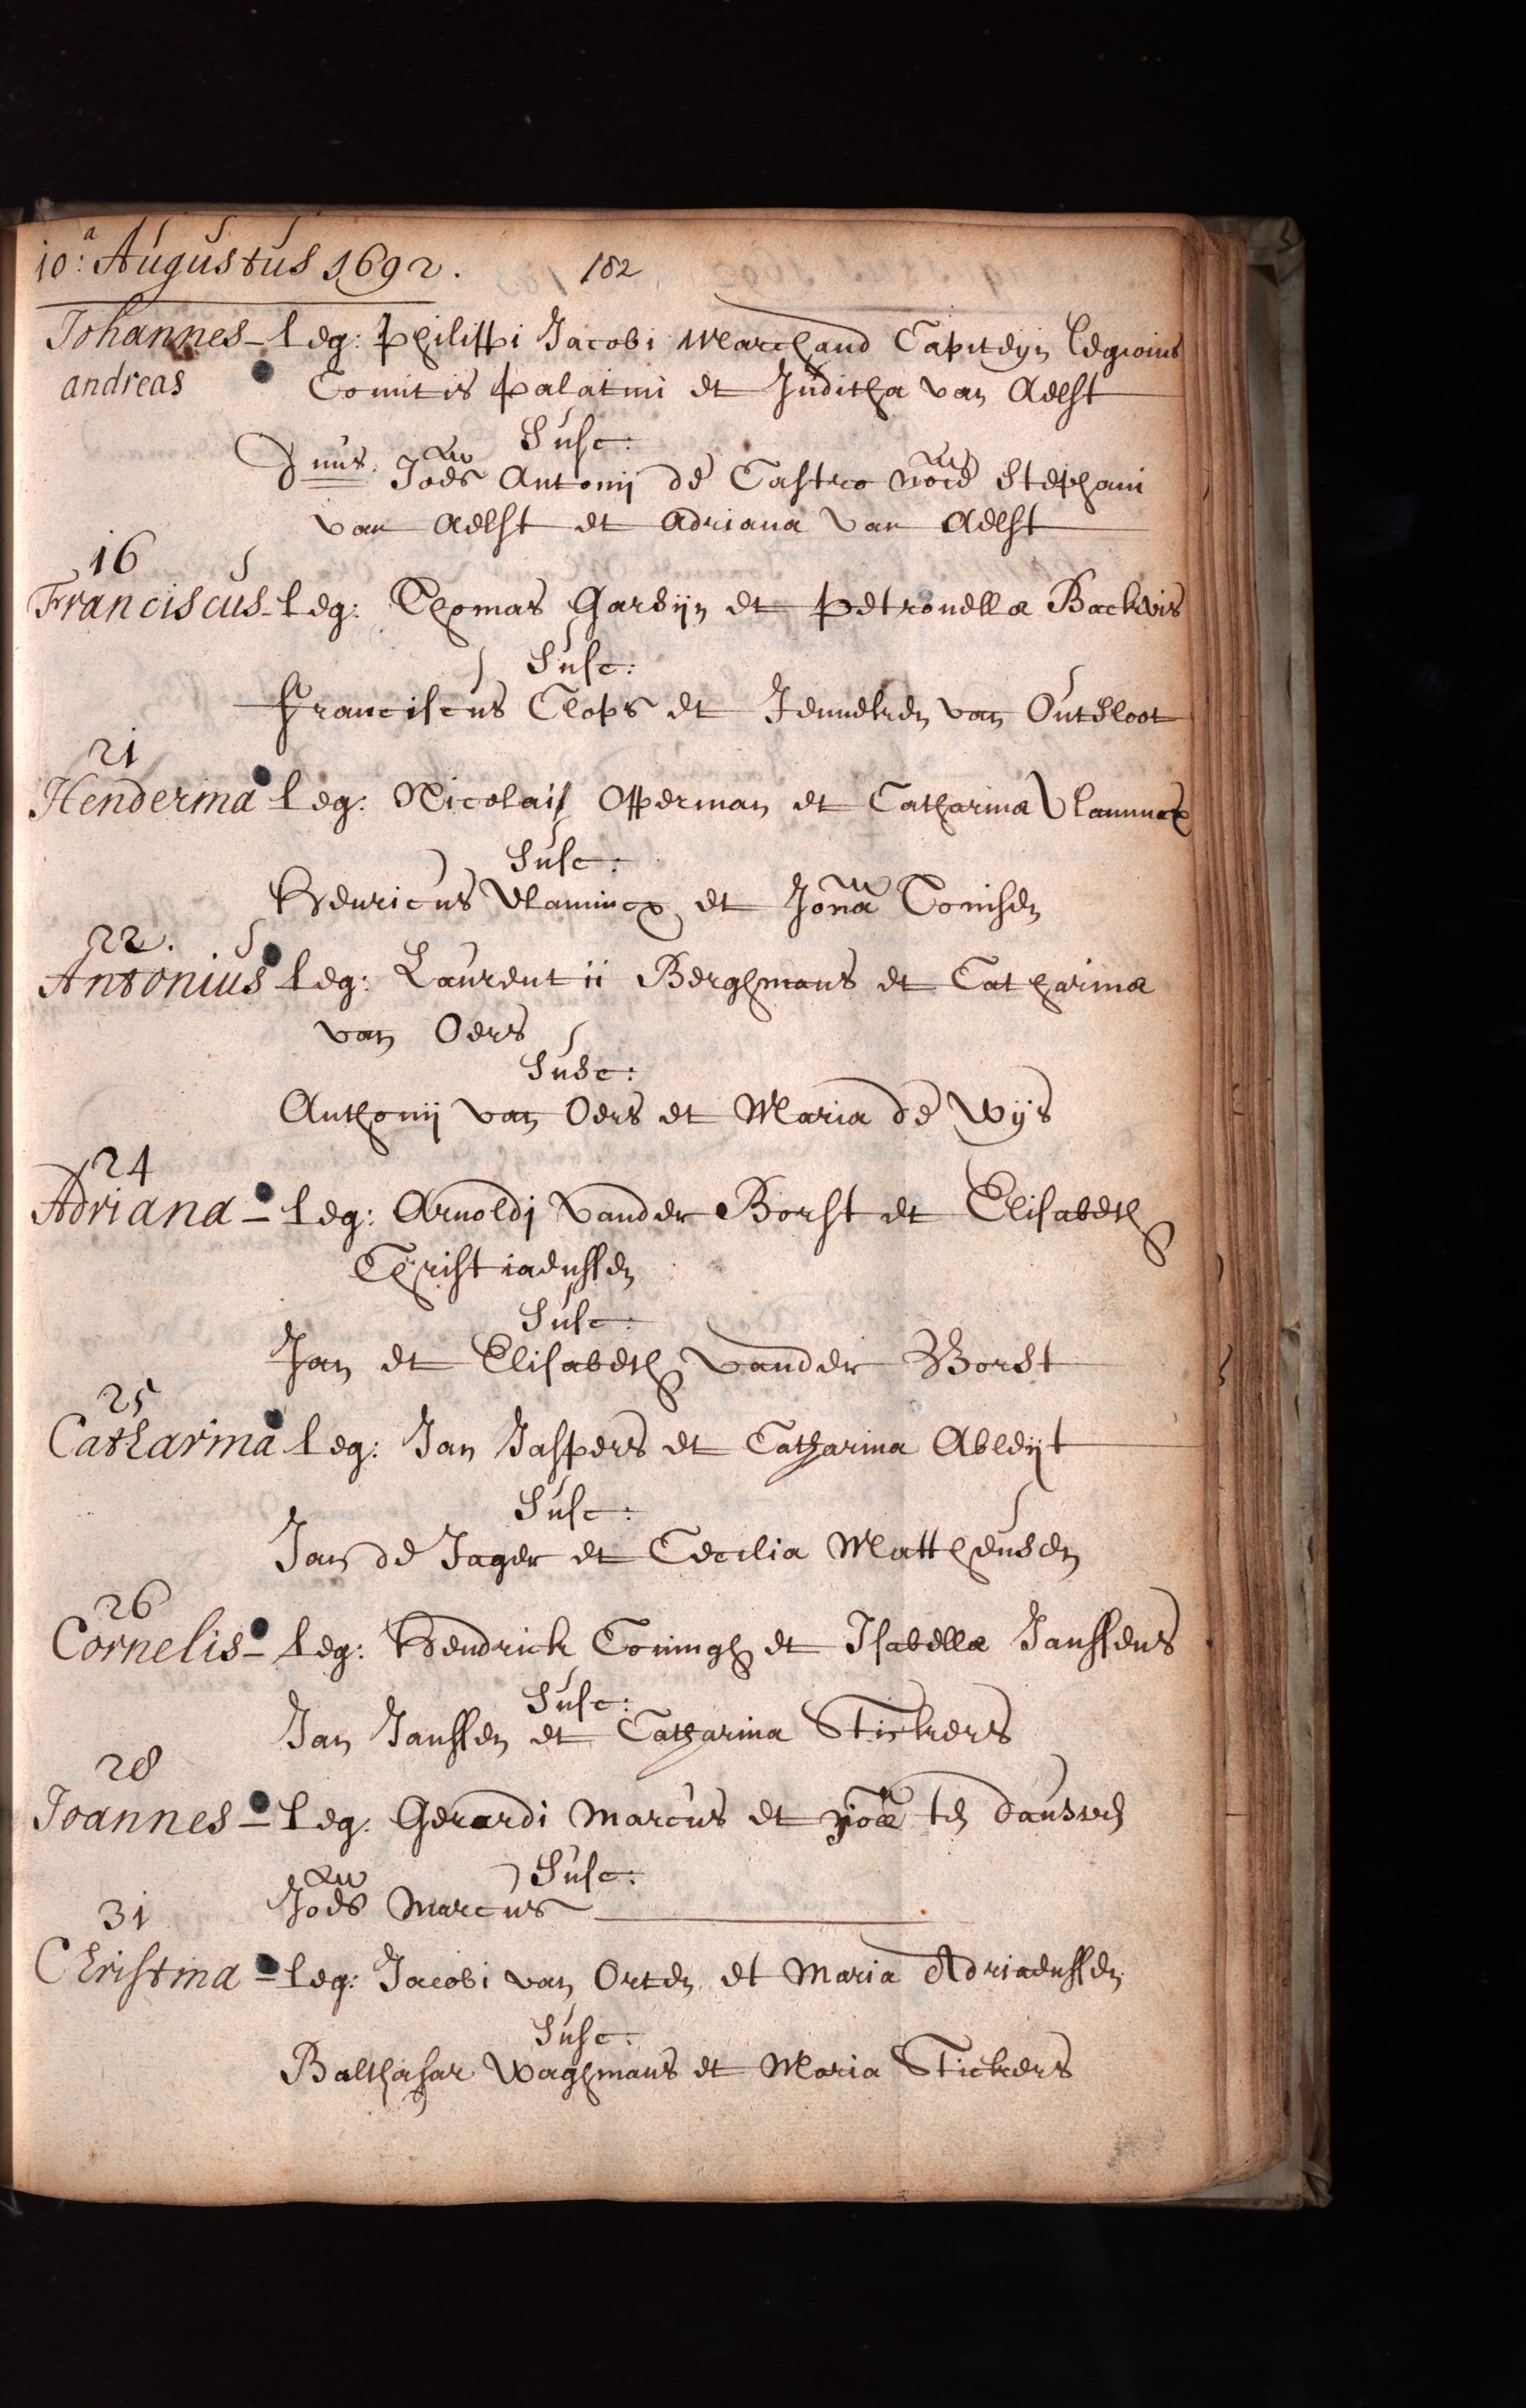 10:a Augustus 1692. 182
Johannes - leg: Philippi Jacobi Marchand Capiteyn legionis
andreas Comitis palatini et Juditha van Aelst
Susc:
Dnus. Joes Antonij de Castro noie Stephani
van Aelst et Adriana van Aelst
16
Franciscus - leg: Thomas Gardijn et Petronella Backvis
Susc:
Franciscus Clops et Jenneken van Outsloot
21
Henderina leg: Nicolai Opperman et Catharina Vlaminck
Susc:
Henricus Vlamincx et Jona Conisen
22.
Antonius leg: Laurentii Berghmans et Catharina
van Oers
Susc:
Anthonij van Oers et Maria de Wijs
24
Adriana - leg: Arnoldi vander Borst et Elisabeth
Christiaenssen
Susc:
Jan et Elisabeth vander Borst
25
Catharina leg: Jan Jaspers et Catharina Ableijt
Susc:
Jan de Jager et Cecilia Mattheusen
26
Cornelis - leg: Hendrick Coningh et Isabella Janssens
Susc:
Jan Janssen et Catharina Stickers
28
Joannes - leg: Gerardi Marcus et
Susc:
Joes Marcus
31
Christina - leg: Jacobi van Orten et Maria Adriaenssen
Susc:
Balthasar Waghmans et Maria Stickers